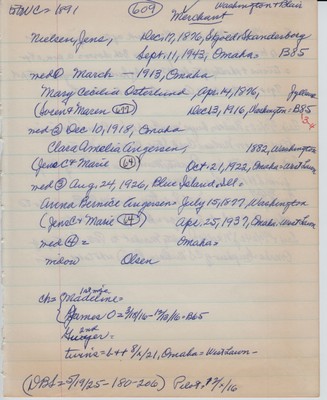 (609) Washington + Blair
Merchant
Nielsen, Jens, Dec. 17, 1876, Skanderborg
Sept. 11, 1943, Omaha = B85
med ① March — 1913, Omaha
Mary Cecilia Osterlund, Apr. 14, 1876,
(Soren & Maren (677)) Dec 13, 1916, Washington = B85
med = ② Dec 10, 1918, Omaha
Clara Amelia Jorgensen, 1882, Washington
(Jens C + Marie (64)) Oct. 21, 1922, Omaha = West Lawn
med ③ Aug. 24, 1926, Blue Island = Ill =
Anna Bernice Jorgensen = July 15, 1877, Washington
(Jens C + Marie (64)) Apr. 25, 1937, Omaha = West Lawn
med ④ = Omaha =
Olsen
ch = 1st wife
Madeline =
James O = 3/12/16 - 12/12/16 = B65
2nd
twins = b + + 8/2/21, Omaha = West Lawn -
(DBL = 5/19/25 - 180 - 206)